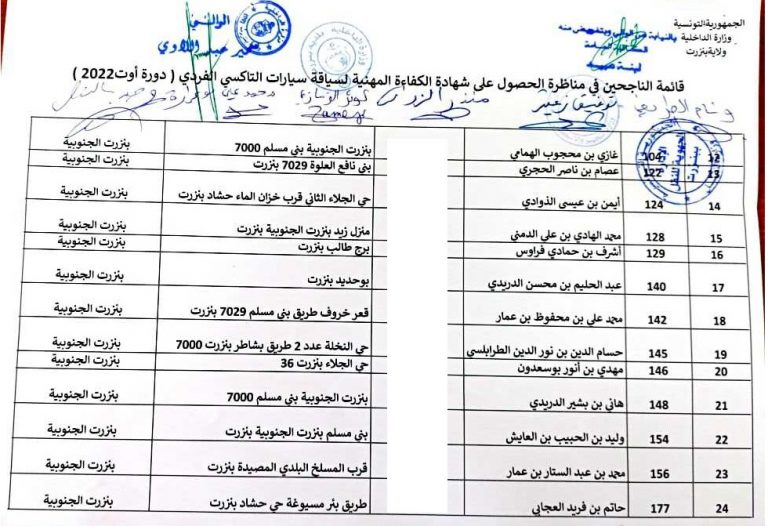 الجمهورية التونسية
وزارة الداخلية
ولاية بنزرت
بالنيابة عن الوالي وبتفويض منه
الوالي
قائمة الناجحين في مناظرة الحصول على شهادة الكفاءة المهنية لسياقة سيارات التاكسي الفردي ( دورة أوت2022 )
12 104 غازي بن محجوب الهمامي بنزرت الجنوبية بني مسلم 7000 بنزرت الجنوبية
13 122 عصام بن ناصر الحجري بني نافع العلوة 7029 بنزرت بنزرت الجنوبية
14 124 أيمن بن عيسى الذوادي حي الجلاء الثاني قرب خزان الماء حشاد بنزرت بنزرت الجنوبية
15 128 محمد الهادي بن علي الدمني منزل زيد بنزرت الجنوبية بنزرت بنزرت الجنوبية
16 129 أشرف بن حمادي فراوس برج طالب بنزرت بنزرت الجنوبية
17 140 عبد الحليم بن محسن الدريدي بوحديد بنزرت بنزرت الجنوبية
18 142 محمد علي بن محفوظ بن عمار قعر خروف طريق بني مسلم 7029 بنزرت بنزرت الجنوبية
19 145 حسام الدين بن نور الدين الطرابلسي حي النخلة عدد 2 طريق بشاطر بنزرت 7000 بنزرت الجنوبية
20 146 مهدي بن أنور بوسعدون حي الجلاء بنزرت 36 بنزرت الجنوبية
21 148 هاني بن بشير الدريدي بنزرت الجنوبية بني مسلم 7000 بنزرت الجنوبية
22 154 وليد بن الحبيب بن العايش بني مسلم بنزرت الجنوبية بنزرت بنزرت الجنوبية
23 156 محمد بن عبد الستار بن عمار قرب المسلخ البلدي المصيدة بنزرت بنزرت الجنوبية
24 177 حاتم بن فريد العجابي طريق بئر مسيوغة حي حشاد بنزرت بنزرت الجنوبية